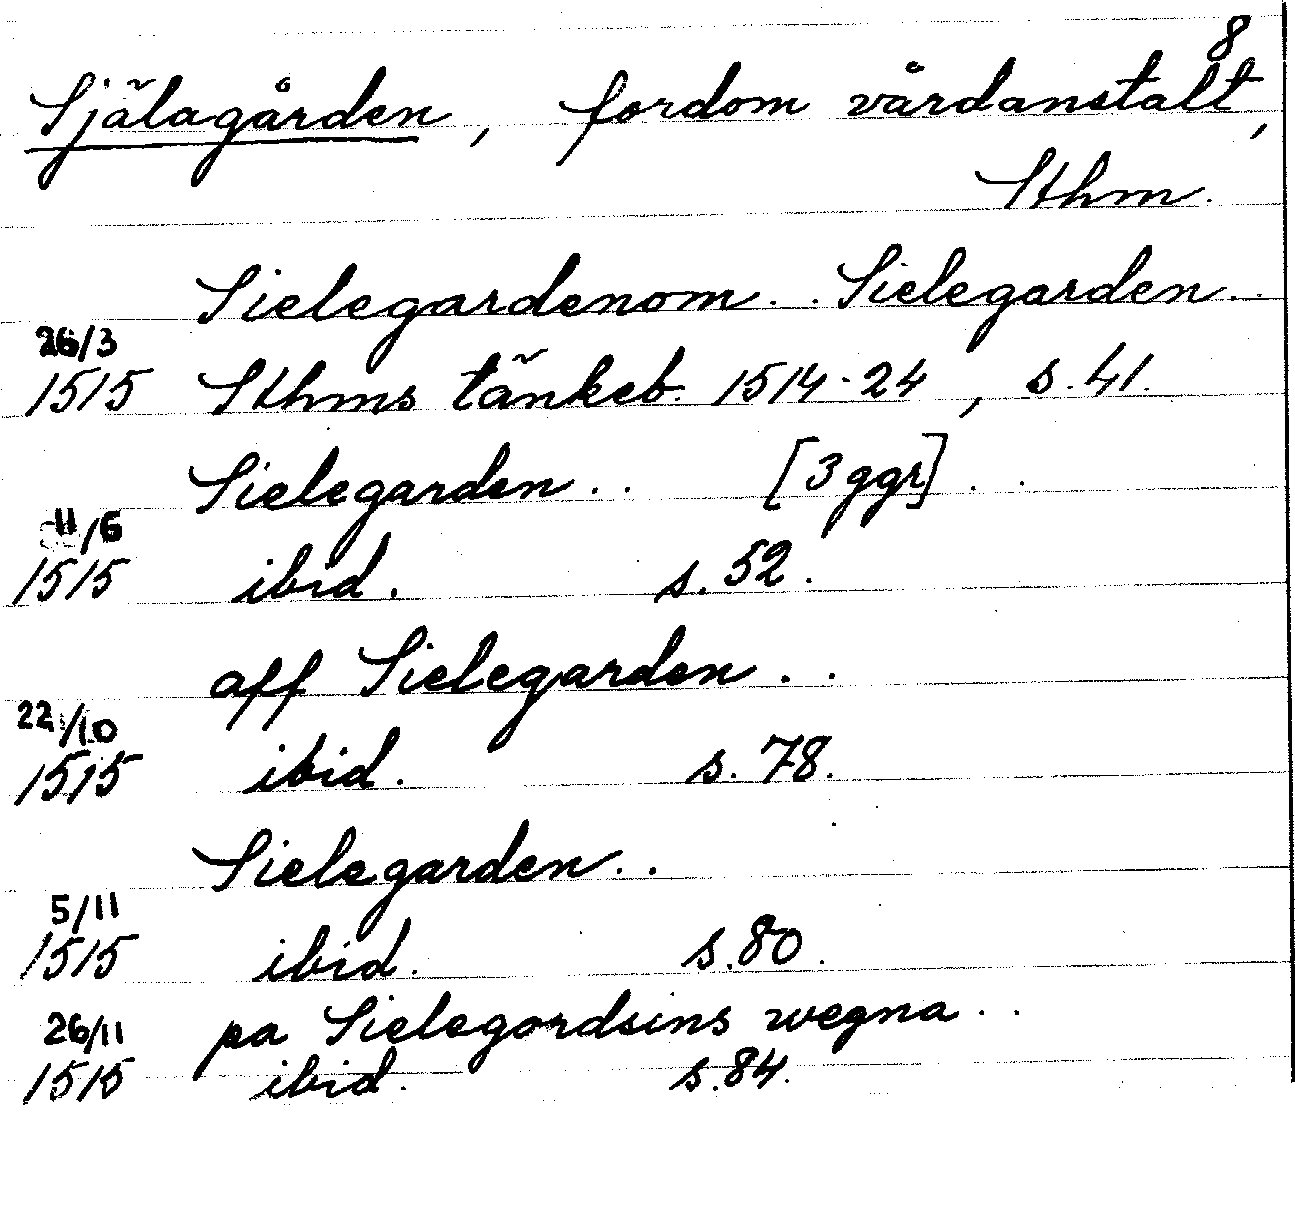 8
Själagården, fordom vårdanstalt,
Sthm.
Sielegardenom . . Sielegarden . .
26/3
1515 Sthms tänkeb. 1514-24, s. 41.
Sielegarden . . [3 ggr] . .
11/6
1515 ibid. s. 52.
aff Sielegarden . .
22/10
1515 ibid. s. 78.
Sielegarden . .
5/11
1515 ibid. s. 80.
26/11 pa Sielegordsens wegna . .
1515 ibid. s. 84.